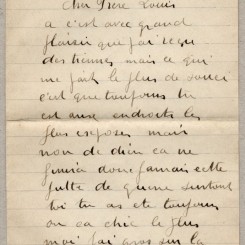 Cher Frere Louis
a c'est avec grand
plaisir que j'ai reçu
des tiennes mais ce qui
me fait le plus de souci
c'est que toujours tu
est aux endroits les
plus exposer mais
non de dieu ca ne
finira donc jamais cette
putte de guerre surtout
toi tu as ete toujours
on ca chie le plus
moi j'ai gros sur la